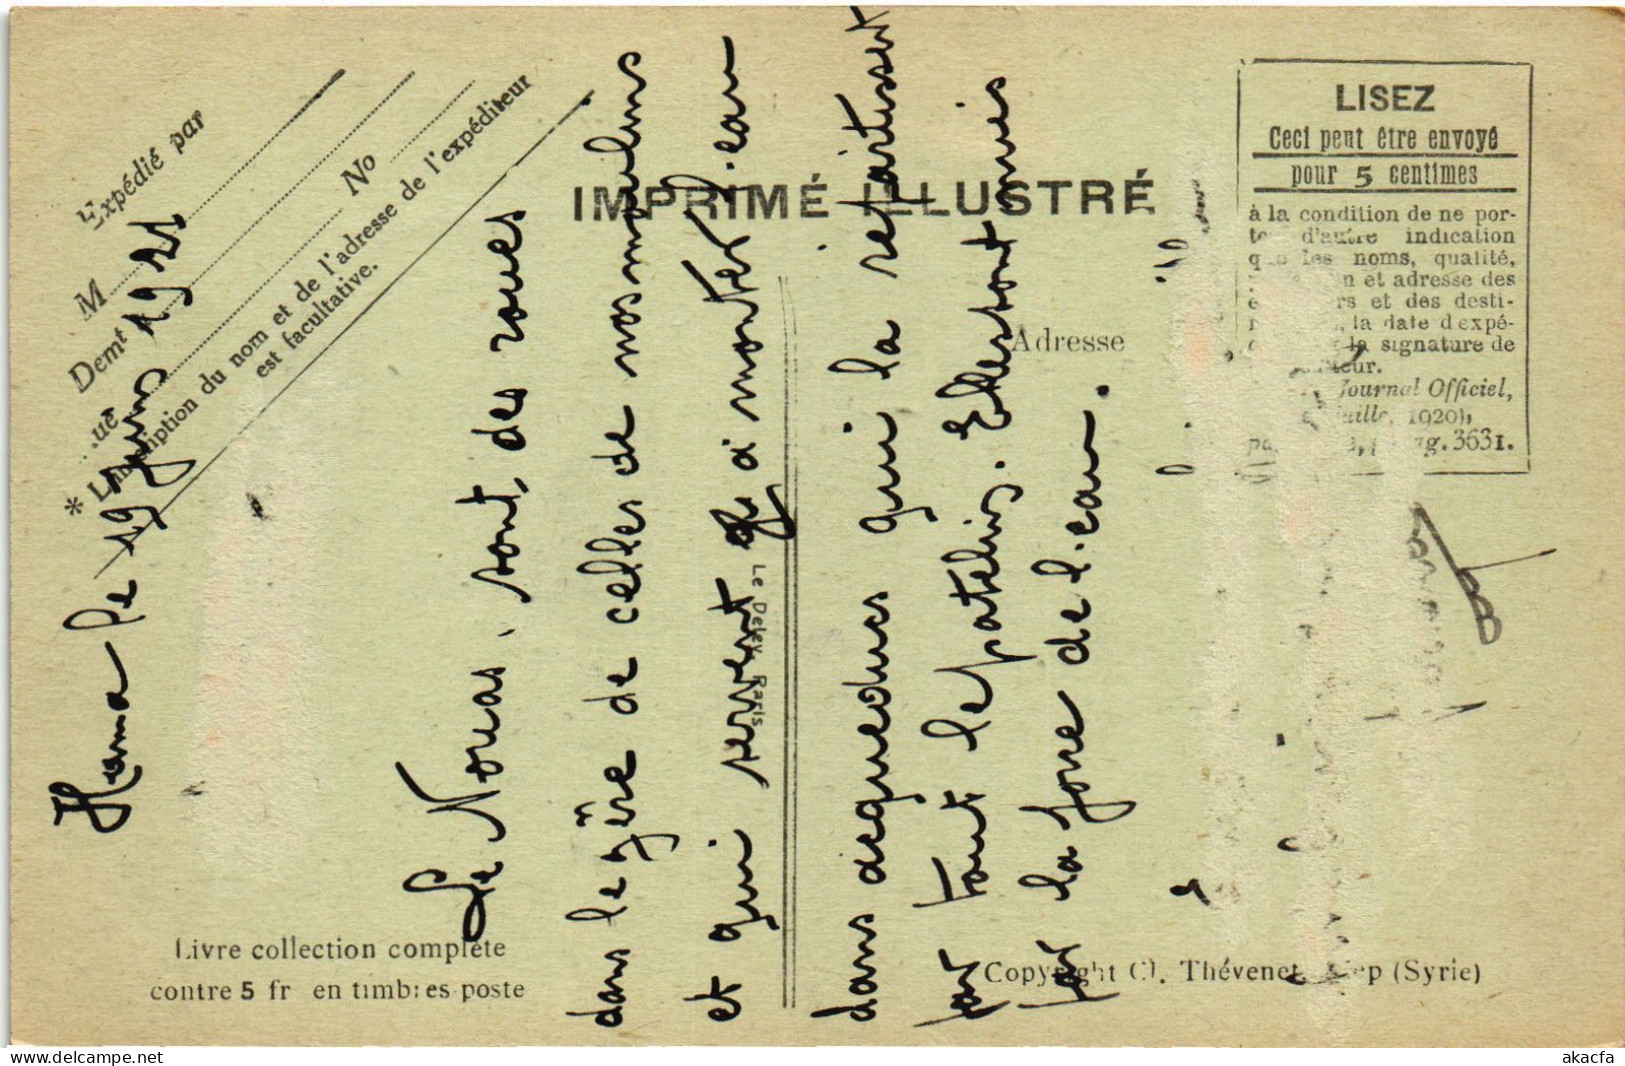 Expédié par
M
Demt
No
* L'inscription du nom et de l'adresse de l'expéditeur
est facultative.
Hama le 19 Juin 1921
Le Nouas, sont, des roues
dans le gëre de celles de nos moulins
et qui servent qui a monter l'eau
dans acqueducs qui la répartisset
par tout le patelin. Elles sont mues
par la force de l'eau.
IMPRIMÉ ILLUSTRÉ
Adresse
Le Deley, Paris
LISEZ
Ceci peut être envoyé
pour 5 centimes
à la condition de ne por-
d'autre indication
les noms, qualité,
et adresse des
et des desti-
la date d'expé-
la signature de
Journal Officiel,
1920),
3631.
Livre collection complète
contre 5 fr en timbres-poste
Copyright Cl. Thévenet (Syrie)
delcampe.net
akacfa